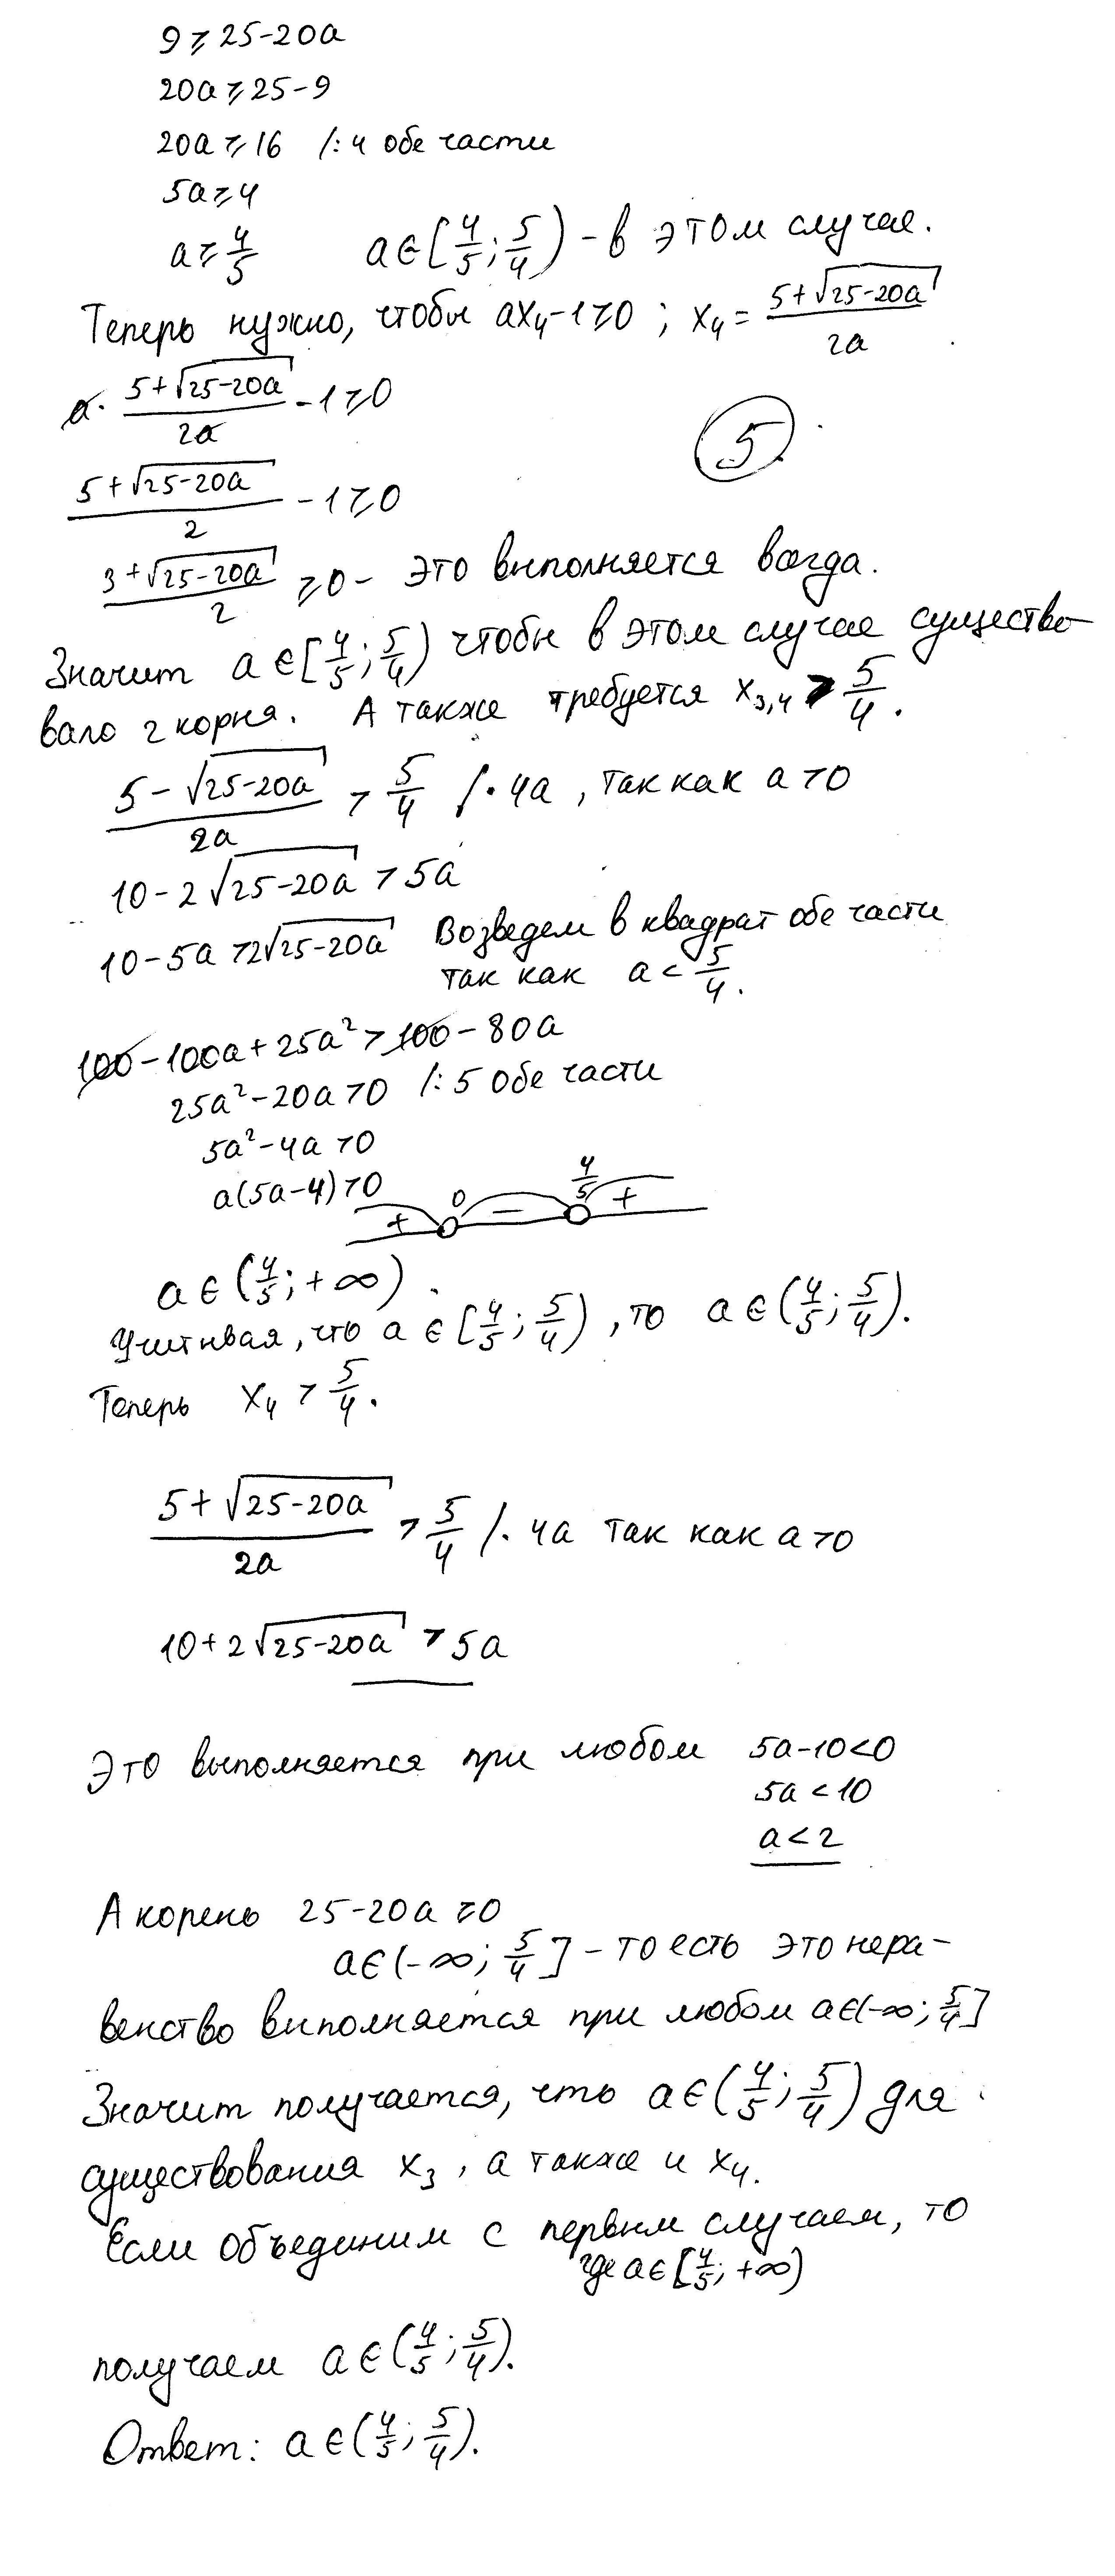 9 ⩾ 25-20a
20a ⩾ 25-9
20a ⩾ 16 /: 4 обе части
5a ⩾ 4
a ⩾ 4/5 a ∈ [4/5; 5/4) - в этом случае.
Теперь нужно, чтобы ax₄-1 ⩾ 0 ; x₄ = (5+√(25-20a))/(2a)
a · (5+√(25-20a))/(2a) - 1 ⩾ 0
5
(5+√(25-20a))/2 - 1 ⩾ 0
(3+√(25-20a))/2 ⩾ 0 - это выполняется всегда.
Значит a ∈ [4/5; 5/4) чтобы в этом случае существо-
вало 2 корня. А также требуется x₃,₄ > 5/4.
(5-√(25-20a))/(2a) > 5/4 /· 4a , так как a > 0
10-2√(25-20a) > 5a
10-5a > 2√(25-20a) Возведем в квадрат обе части
так как a < 5/4.
100-100a+25a² > 100-80a
25a²-20a > 0 /: 5 обе части
5a²-4a > 0
a(5a-4) > 0 + 0 - 4/5 +
a ∈ (4/5; +∞).
Учитывая, что a ∈ [4/5; 5/4) , то a ∈ (4/5; 5/4).
Теперь x₄ > 5/4.
(5+√(25-20a))/(2a) > 5/4 /· 4a так как a > 0
10+2√(25-20a) > 5a
Это выполняется при любом 5a-10<0
5a < 10
a < 2
А корень 25-20a ⩾ 0
a ∈ (-∞; 5/4] - то есть это нера-
венство выполняется при любом a ∈ (-∞; 5/4]
Значит получается, что a ∈ (4/5; 5/4) для
существования x₃, а также и x₄.
Если объединим с первым случаем, то
где a ∈ [4/5; +∞)
получаем a ∈ (4/5; 5/4).
Ответ: a ∈ (4/5; 5/4).